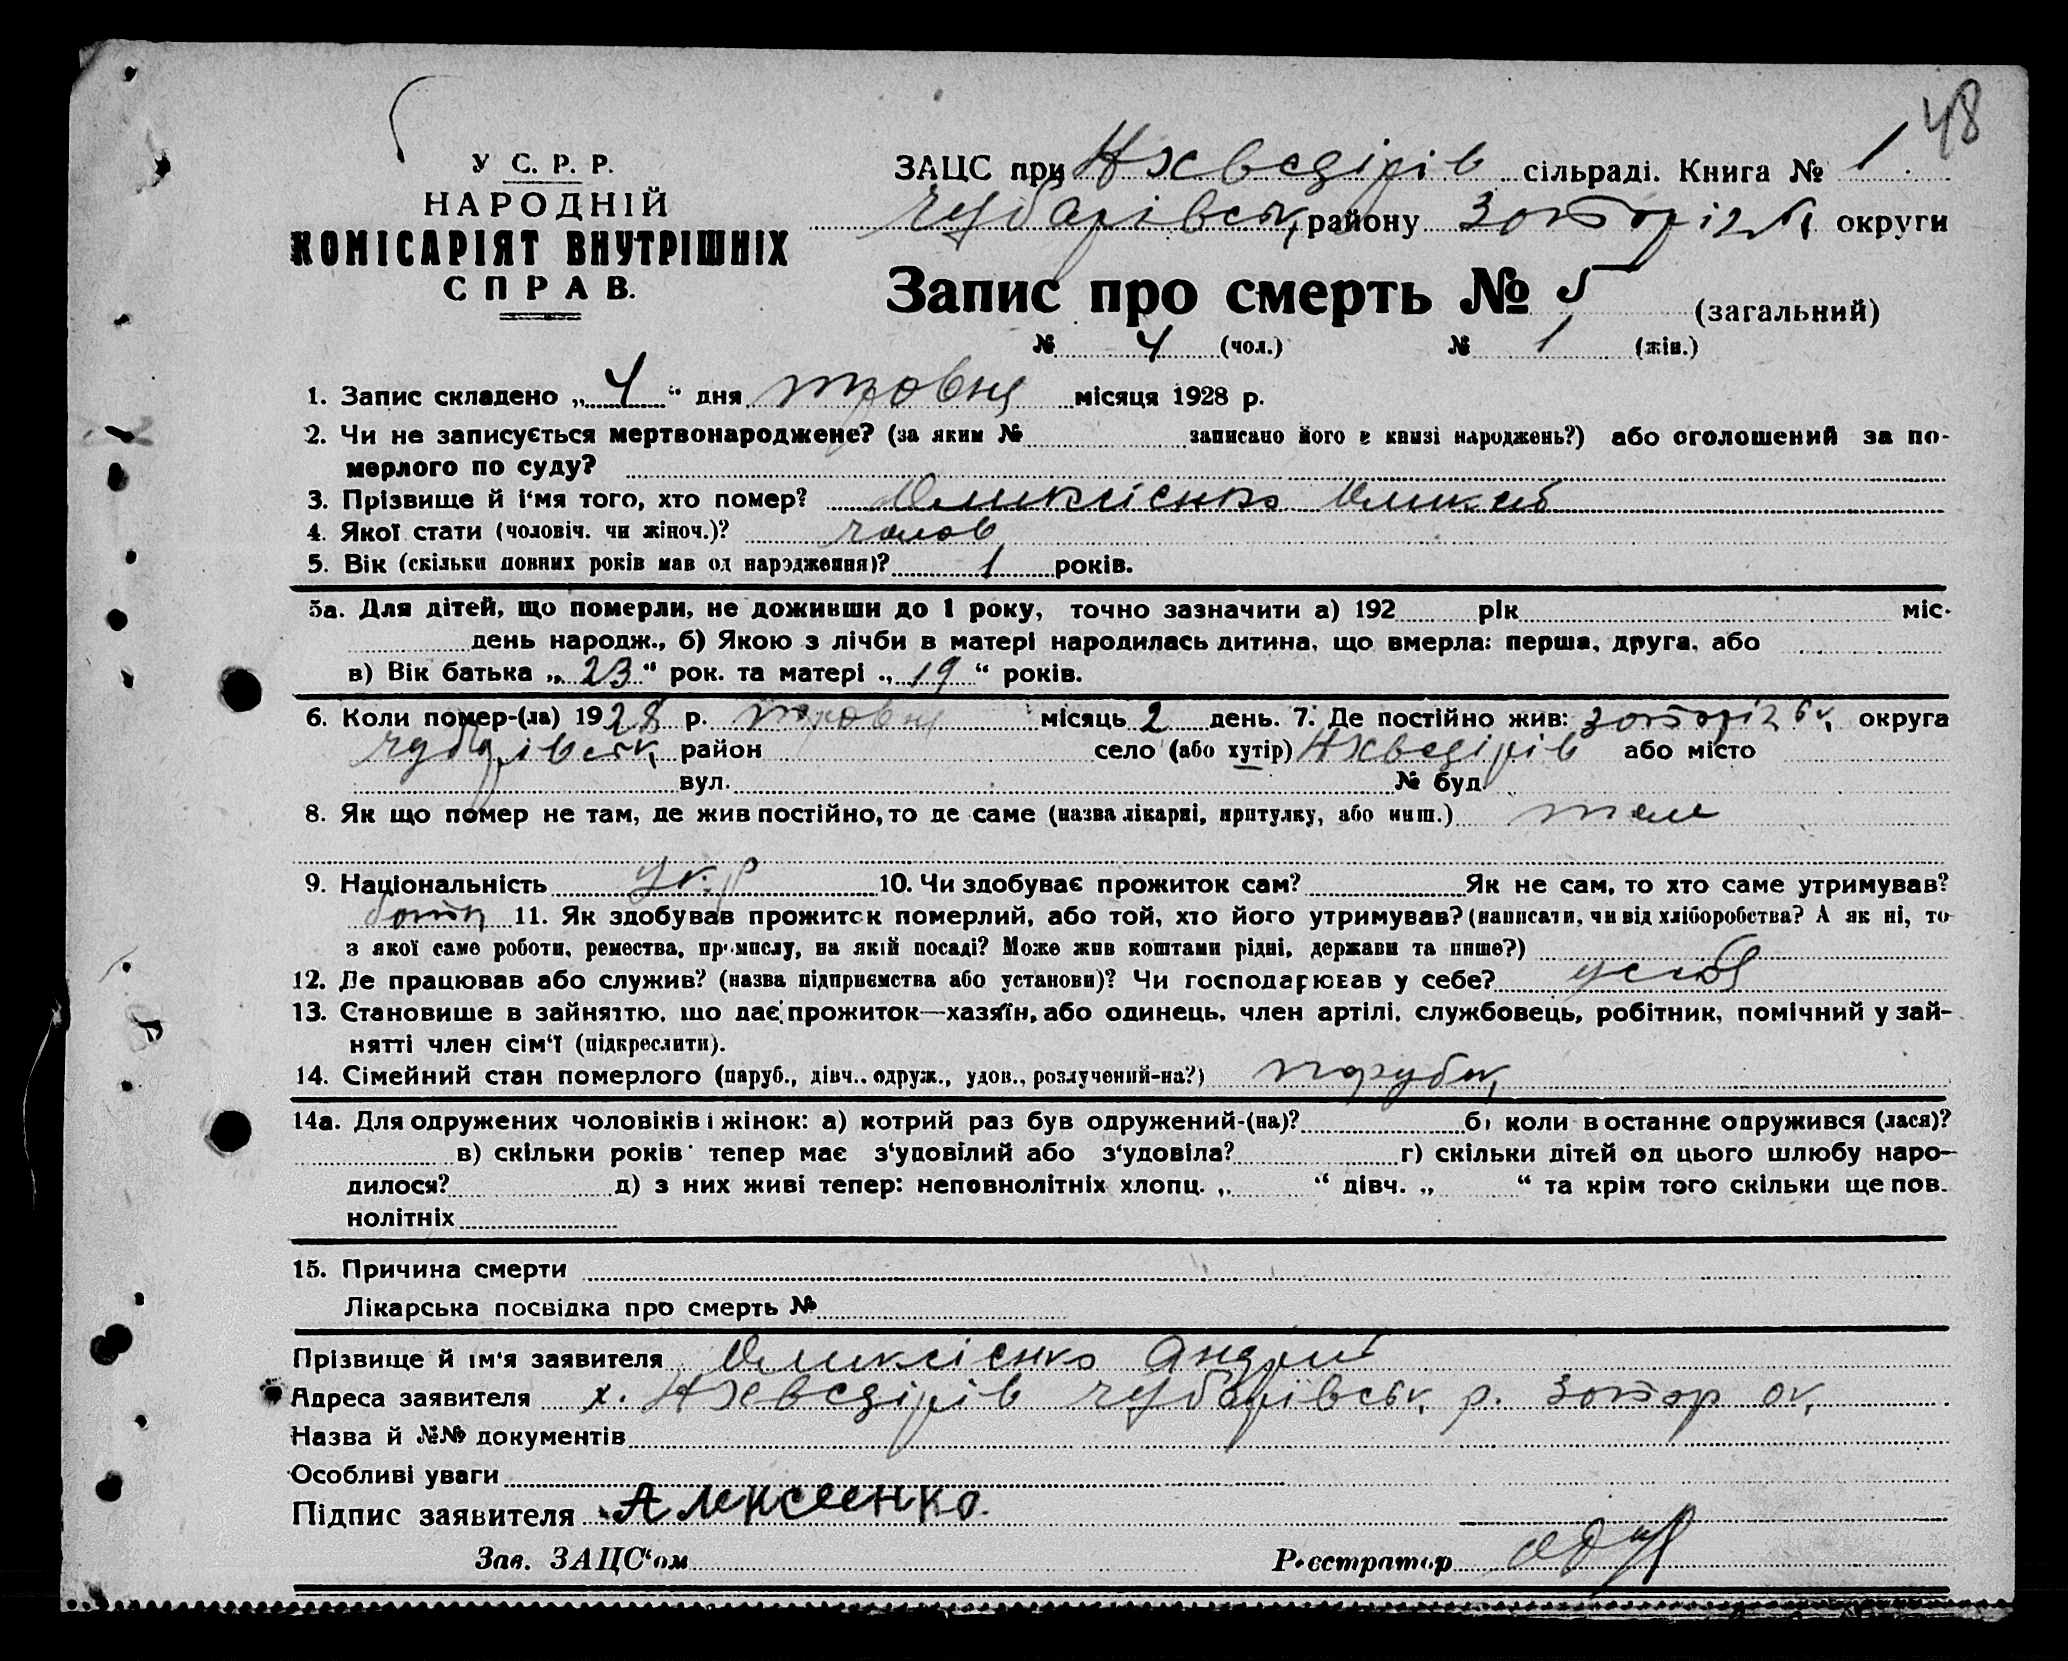 48
У С. Р. Р.
НАРОДНІЙ
КОМІСАРІЯТ ВНУТРІШНІХ
СПРАВ.
ЗАЦС при Нхведірів сільраді. Книга № 1
Чубарівськ, району Запоріз округи
Запис про смерть № 5 (загальний)
№ 4 (чол.) № 1 (жін.)
1. Запис складено „ 4 “ дня травня місяця 1928 р.
2. Чи не записується мертвонароджене? (за яким № записано його в книзі народжень?) або оголошений за по-
мерлого по суду?
3. Прізвище й і‘мя того, хто помер? Оликсієнко Оликсій
4. Якої стати (чоловіч. чи жіноч.)? чолов
5. Вік (скільки повних років мав од народження)? 1 років.
5а. Для дітей, що померли, не доживши до 1 року, точно зазначити а) 192 рік міс.
день народж., б) Якою з лічби в матері народилась дитина, що вмерла: перша, друга, або
в) Вік батька „ 23 “ рок. та матері „ 19 “ років.
6. Коли помер-(ла) 1928 р. травня місяць 2 день. 7. Де постійно жив: округа
Чубарівськ, район село (або хутір) Нхведірів або місто
вул. № буд.
8. Як що помер не там, де жив постійно, то де саме (назва лікарні, притулку, або инш.) там
9. Національність укр 10. Чи здобуває прожиток сам? Як не сам, то хто саме утримував?
батьк 11. Як здобував прожиток померлий, або той, хто його утримував? (написати, чи від хліборобства? А як ні, то
з якої саме роботи, ремества, промислу, на якій посаді? Може жив коштами рідні, держави та инше?)
12. Де працював або служив? (назва підприємства або установи)? Чи господарював у себе? у себе
13. Становише в зайняттю, шо дає прожиток—хазяїн, або одинець, член артілі, службовець, робітник, помічний у зай-
нятті член сім‘ї (підкреслити).
14. Сімейний стан померлого (паруб., дівч., одруж., удов., розлучений-на?) парубок,
14а. Для одружених чоловіків і жінок: а) котрий раз був одружений-(на)? б) коли в останнє одружився (лася)?
в) скільки років тепер має з‘удовілий або з‘удовіла? г) скільки дітей од цього шлюбу наро-
дилося? д) з них живі тепер: неповнолітніх хлопц. „ “ дівч. „ “ та крім того скільки ще пов.
нолітніх
15. Причина смерти
Лікарська посвідка про смерть №
Прізвище й ім‘я заявителя Оликсієнко Андрій
Адреса заявителя х. Нхведірів Чубарівськ, р. Запор ок,
Назва й №№ документів
Особливі уваги
Підпис заявителя Алексеенко.
Зав. ЗАЦС‘ом Реєстратор